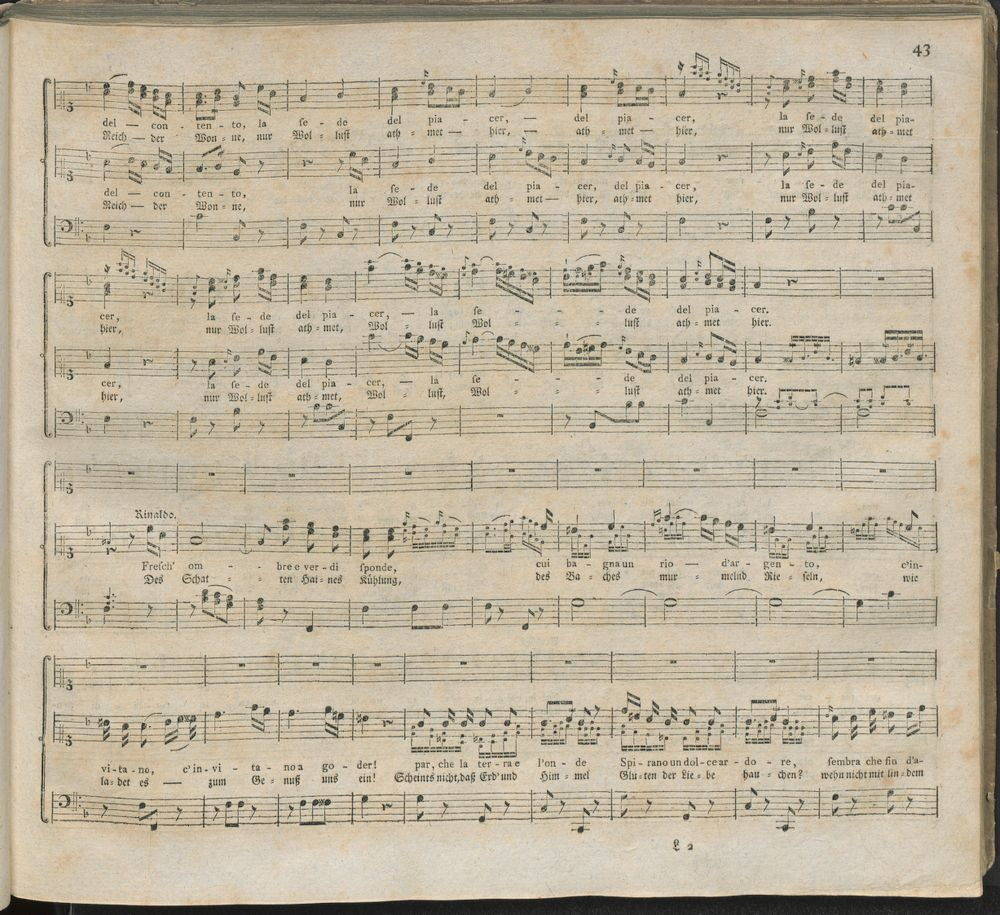 43
del — con - ten - to, la se - de del pia - cer, — del pia - cer, la se - de del pia-
Reich — der Won = ne, nur Wol = lust ath = met — hier, — ath = met — hier, nur Wol = lust ath = met
del — con - ten - to, la se - de del pia - cer, del pia - cer, la se - de del pia-
Reich — der Won = ne, nur Wol = lust ath = met — hier, ath = met hier, nur Wol = lust ath = met
cer, la se - de del pia - cer, — la se - - - de del pia - cer.
hier, nur Wol = lust ath = met, Wol = lust Wol = = = lust ath = met hier.
cer, la se - de del pia - cer, — la se - - - de del pia - cer.
hier, nur Wol = lust ath = met, Wol = lust, Wol = = = lust ath = met hier.
Rinaldo.
Fresch' om - - bre e ver - di sponde, cui ba - gna un rio — d'ar - gen - to, c'in-
Des Schat = = ten Hai = nes Kühlung, des Ba = ches mur = melnd Rie = seln, wie
vi - ta - no, c'in - vi - ta - no a go - der! par, che la ter - ra e l'on - de Spi - rano un dol - ce ar - do - re, sembra che fin d'a-
la = det es — zum Ge = nuß uns ein! Scheints nicht, daß Erd' und Him = mel Glu = ten der Lie = be hau = chen? wehn nicht mit lin = dem
L 2